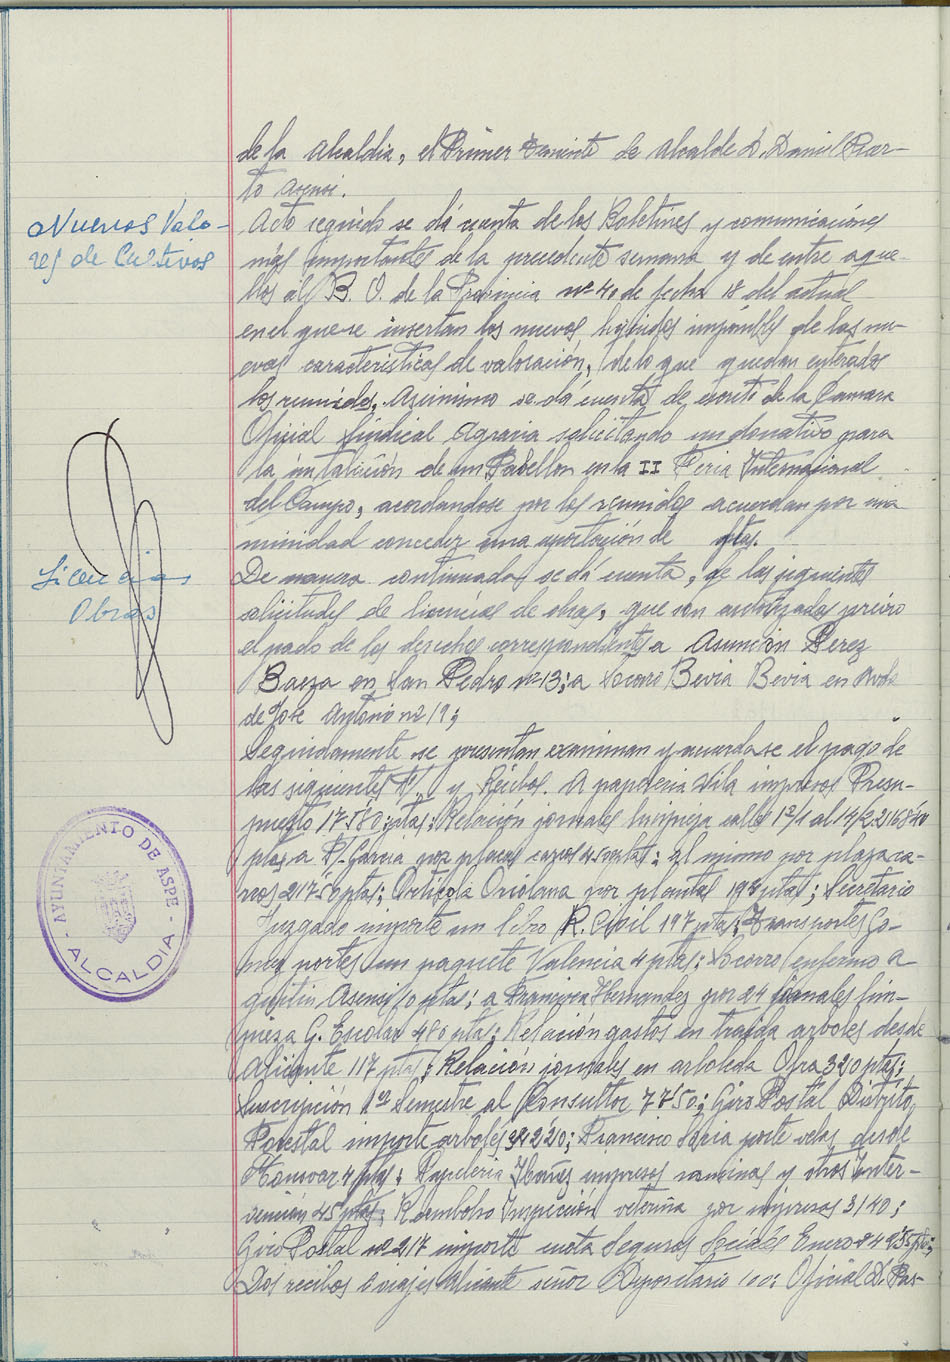 de la Alcaldia, el Primer Teniente de Alcalde D. Daniel Puer-
to Asensi.
Nuevos Valo-
res de Cultivos
Acto seguido se dá cuenta de los Boletines y comunicaciones
más importantes de la precedente semana y de entre aque-
llos al B. O. de la Provincia nº 40 de fecha 18 del actual
en el que se insertan los nuevos liquidos imponibles de las nu-
evas caracteristicas de valoración, de lo que quedan enterados
los reunidos. Asimismo se dá cuenta de escrito de la Camara
Oficial Sindical Agraria solicitando un donativo para
la instalación de un Pabellon en la II Feria Internacional
del Campo, acordandose por los reunidos acuerdan por una
nimidad conceder una aportación de ptas.
Licencias
Obras
De manera continuada se dá cuenta, de las siguientes
solicitudes de licencias de obras, que son autorizadas previo
el pado de los derechos correspondientes a Asunción Perez
Baeza en San Pedro nº 13; a Socorro Bevia Bevia en Avda
de Jose Antonio nº 19;
Seguidamente se presentan examinan y acuerdase el pago de
las siguientes F/. y Recibos. A papeleria Vila impresos Presu-
puesto 17'50 ptas; Relación jornales limpieza calles 1º/1 al 14/2
ptas a F/. Garcia por placas carros ptas; al mismo por placa ca-
rros 217'50 ptas; Orticola Oriolana por plantas 198 ptas; Secretario
Juzgado importe un libro R. Civil 197 ptas; Transportes Go-
mez portes un paquete Valencia 4 ptas; Socorro enfermo A-
gustin Asensi 10 ptas; a Francisca Hernandez por 24 jornales lim-
pieza G. Escolar 480 ptas; Relación gastos en traida arboles desde
Alicante 117 ptas; Relación jornales en arboleda Ofra 320 ptas;
Suscripción 1er Semestre al Consultor 77'50; Giro Postal Distrito
Forestal importe arboles 342'20; Francisco Soria porte velas desde
Monovar 4 ptas; Papeleria Ibañez impresos nominas y otros Inter-
vención 45 ptas; Reembolso Inspección veterña por impresos 31'40;
Giro Postal nº 217 importe cuota Seguros Sociales Enero
Dos recibos viajes Alicante señor Depositario 100; Oficial D. Pas-
AYUNTAMIENTO DE ASPE
- ALCALDIA -